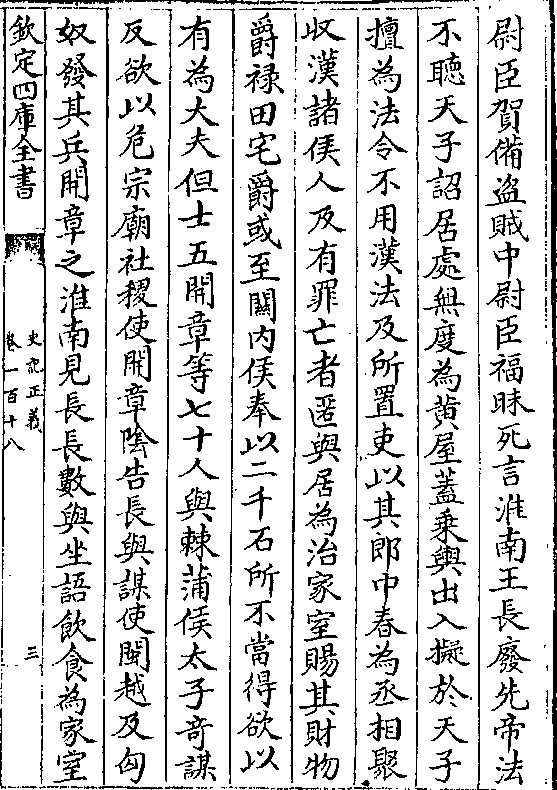 尉臣賀備盜賊中尉臣福昧死言淮南王長廢先帝法
不聽天子詔居處無度為黄屋蓋乗輿出入擬於天子
擅為法令不用漢法及所置吏以其郎中春為丞相聚
収漢諸侯人及有罪亡者匿與居為治家室賜其財物
爵禄田宅爵或至關内侯奉以二千石所不當得欲以
有為大夫但士五開章等七十人與棘蒲侯太子竒謀
反欲以危宗廟社稷使開章隂告長與謀使閩越及匈
奴發其兵開章之淮南見長長數與坐語飲食為家室
欽定四庫全書
史記正義
卷一百十八
三